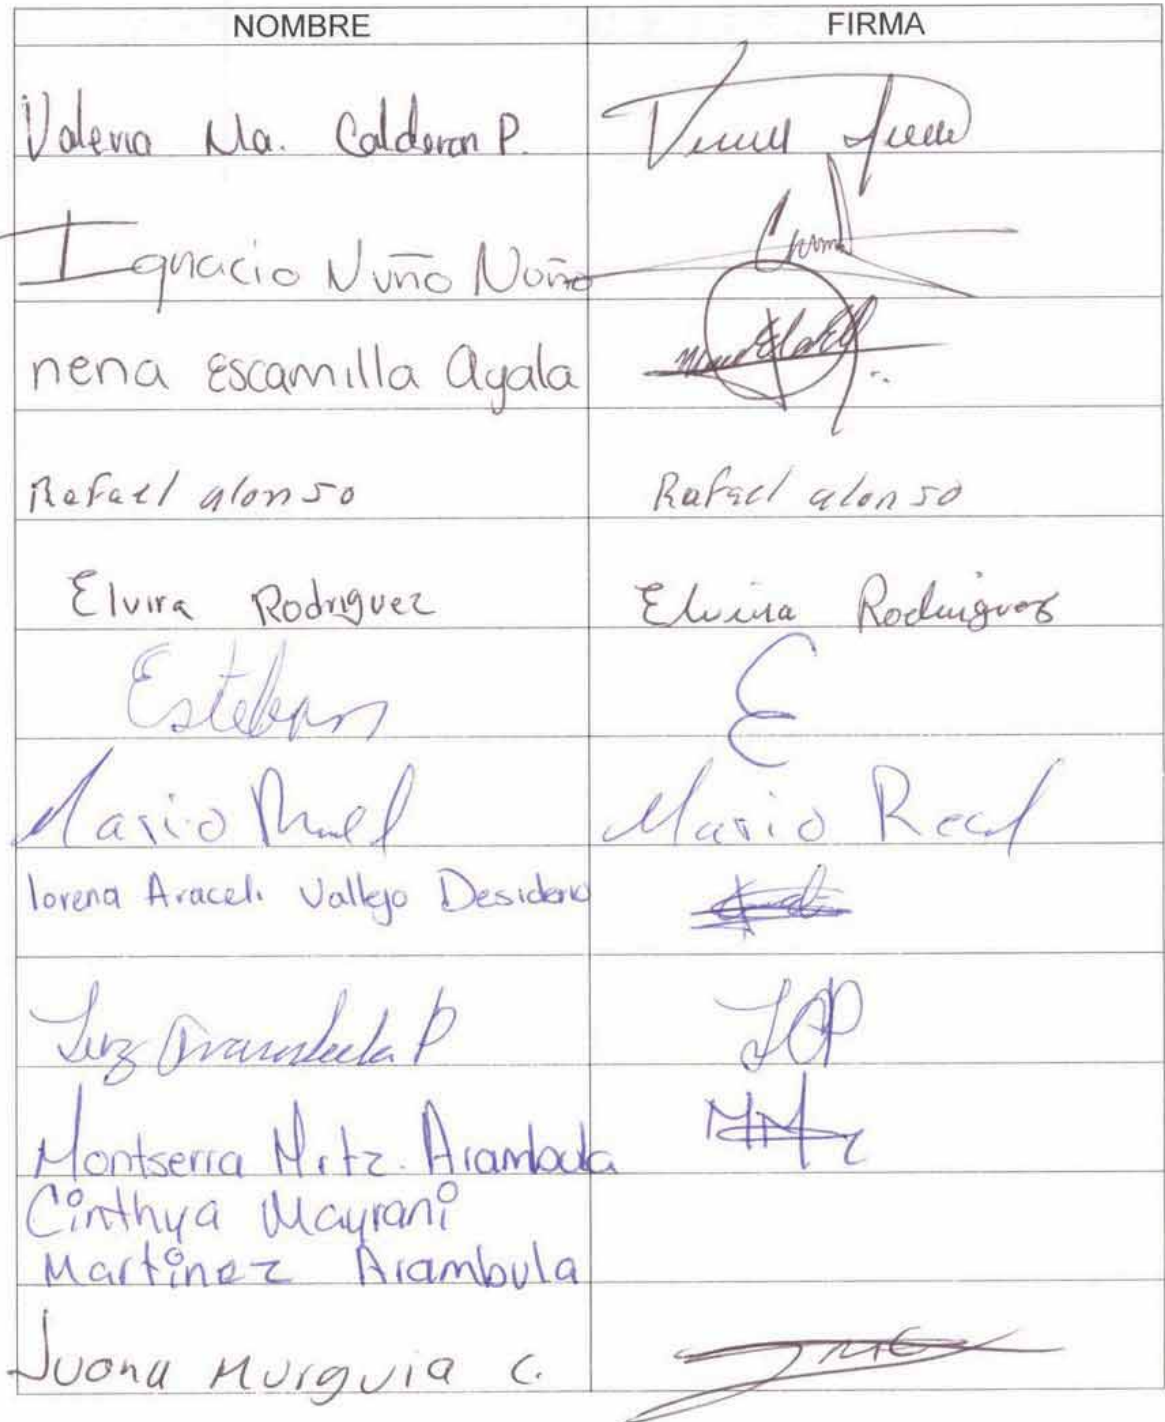 NOMBRE FIRMA
Valeria Ma. Calderon P.
Ignacio Nuño Nuño
nena Escamilla Ayala
Rafael alonso Rafael alonso
Elvira Rodriguez Elvira Rodriguez
Esteban E
Mario Real Mario Real
lorena Araceli Vallejo Desiderio
Luz Arambula P LAP
Montserra Mrtz. Arambula
Cinthya Mayrani
Martinez Arambula
Juana Murguia C.